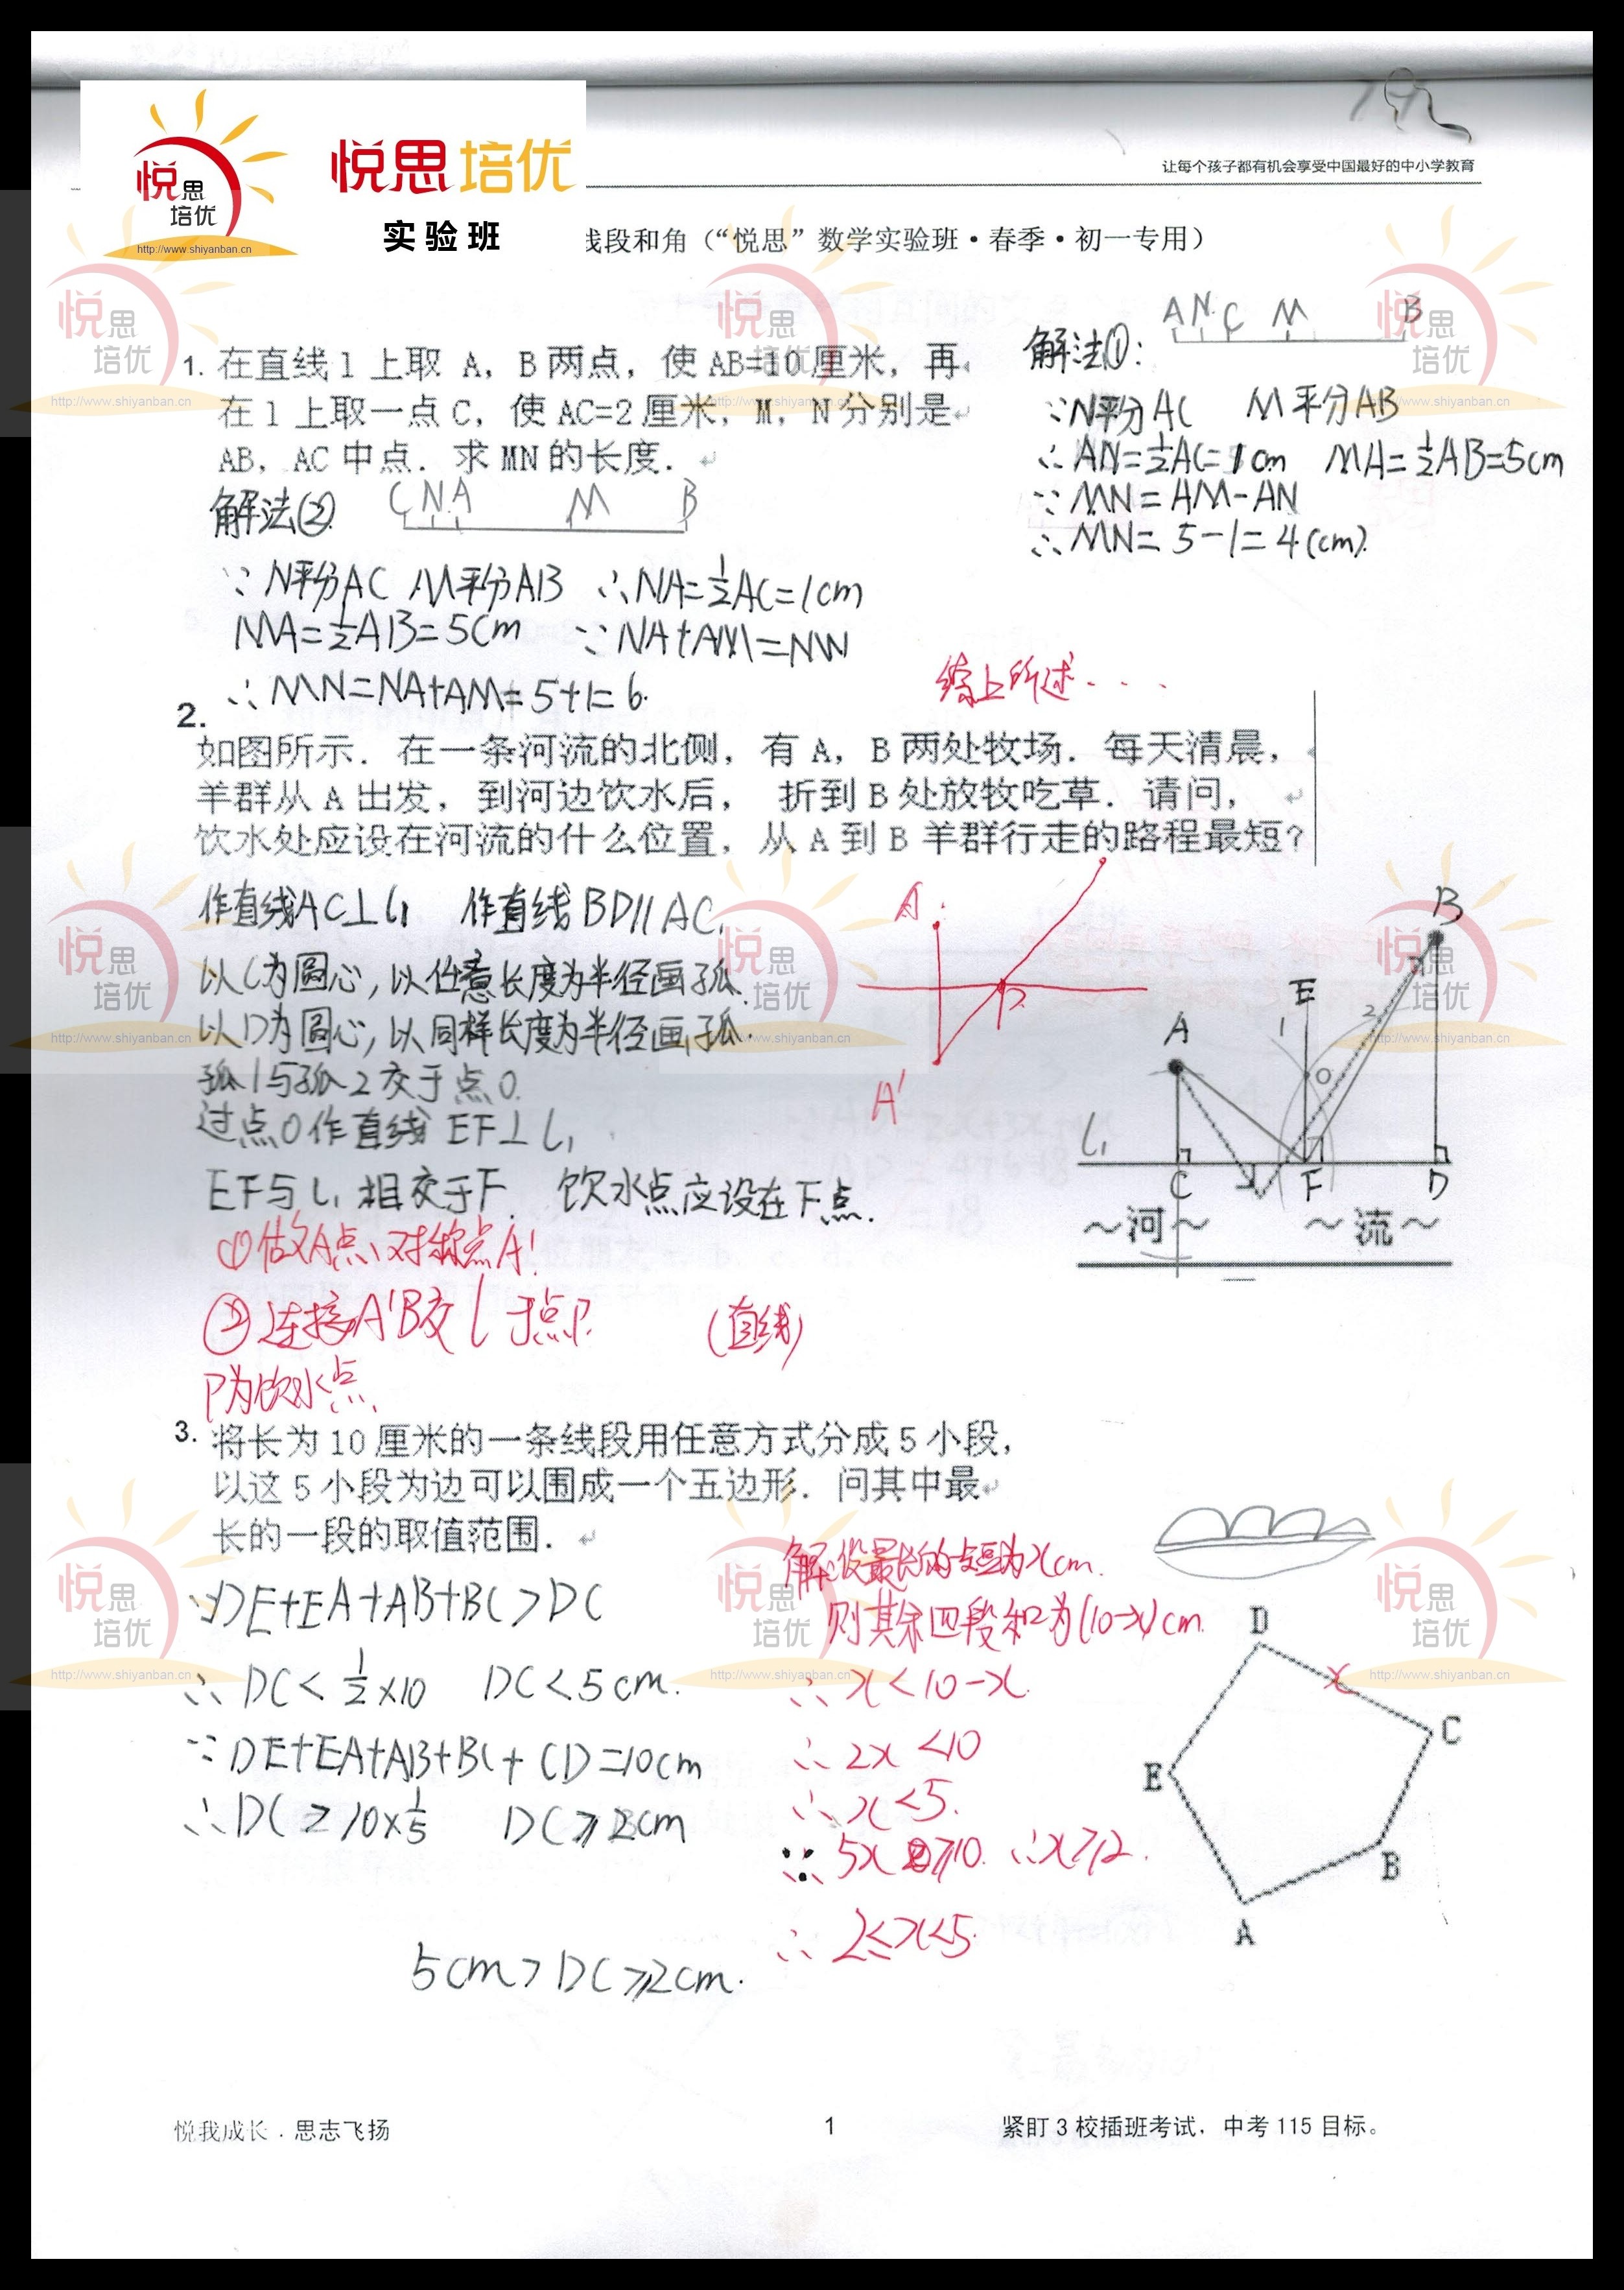 悦思培优
http://www.shiyanban.cn
悦思培优
实验班
让每个孩子都有机会享受中国最好的中小学教育
线段和角（“悦思”数学实验班·春季·初一专用）
1. 在直线l上取 A，B两点，使AB=10厘米，再
在l上取一点C，使AC=2厘米，M，N分别是
AB，AC中点．求MN的长度．
解法①：
A N C M B
∵N平分AC M平分AB
∴AN=½AC=1cm MA=½AB=5cm
∵MN=AM-AN
∴MN=5-1=4(cm).
解法②
C N A M B
∵N平分AC M平分AB ∴NA=½AC=1cm
MA=½AB=5cm ∵NA+AM=NM
∴MN=NA+AM=5+1=6.
综上所述...
2.
如图所示．在一条河流的北侧，有A，B两处牧场．每天清晨，
羊群从A出发，到河边饮水后， 折到B处放牧吃草．请问，
饮水处应设在河流的什么位置，从A到B羊群行走的路程最短?
作直线AC⊥l₁ 作直线BD∥AC,
以C为圆心,以任意长度为半径画弧.
以D为圆心,以同样长度为半径画弧.
弧1与弧2交于点O.
过点O作直线EF⊥l₁
EF与l₁相交于F. 饮水点应设在F点.
A
P
A'
B
E
1
2
A
O
l₁
C F D
～河～ ～流～
①做A点、对称点A'
②连接A'B交l于点P. (直线)
P为饮水点.
3. 将长为10厘米的一条线段用任意方式分成5小段，
以这5小段为边可以围成一个五边形．问其中最
长的一段的取值范围．
∵DE+EA+AB+BC>DC
∴DC<½×10 DC<5cm.
∵DE+EA+AB+BC+CD=10cm
∴DC≥10×⅕ DC≥2cm
5cm>DC≥2cm.
解:设最长的线段为xcm.
则其余四段和为(10-x)cm.
∴x<10-x.
∴2x<10
∴x<5.
∵5x≥10. ∴x≥2.
∴2≤x<5.
D
x
C
E
B
A
悦我成长．思志飞扬
1
紧盯3校插班考试，中考115目标。